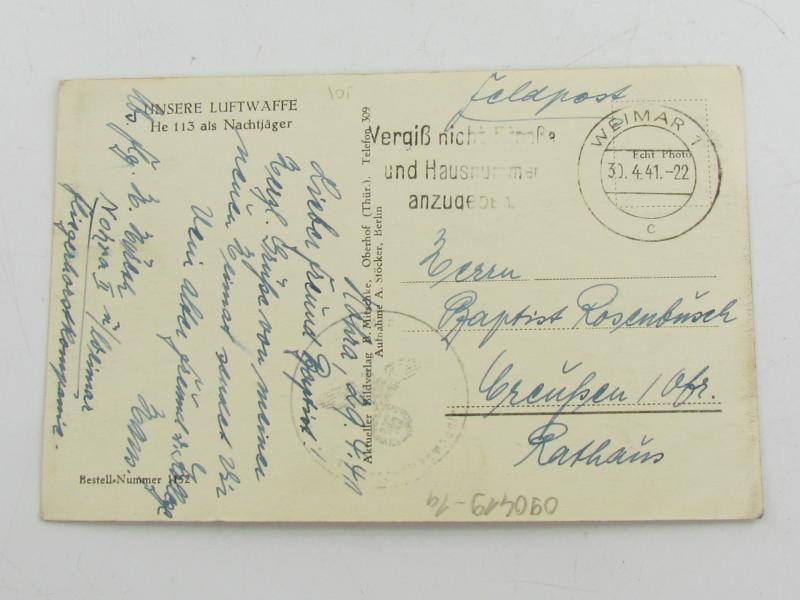 UNSERE LUFTWAFFE
He 113 als Nachtjäger
101
Feldpost
Vergiß nicht Straße
und Hausnummer
anzugeben.
WEIMAR 1
30.4.41.-22
c
Echt Photo
Herrn
Baptist Rosenbusch
Creußen / Ofr.
Rathaus
Aktueller Bildverlag B. Mitschke, Oberhof (Thür.). Telefon 309
Aufnahme A. Stöcker, Berlin
Nohra, 29. 4. 41
Lieber Freund Baptist!
Herzl. Grüße von meiner
neuen Heimat sendet Dir
Dein alter Freund u. Kollege
Hans.
Abs. Flg. H.
Nohra II b/Weimar
Fliegerhorstkompanie.
Bestell-Nummer 1152
090419-19